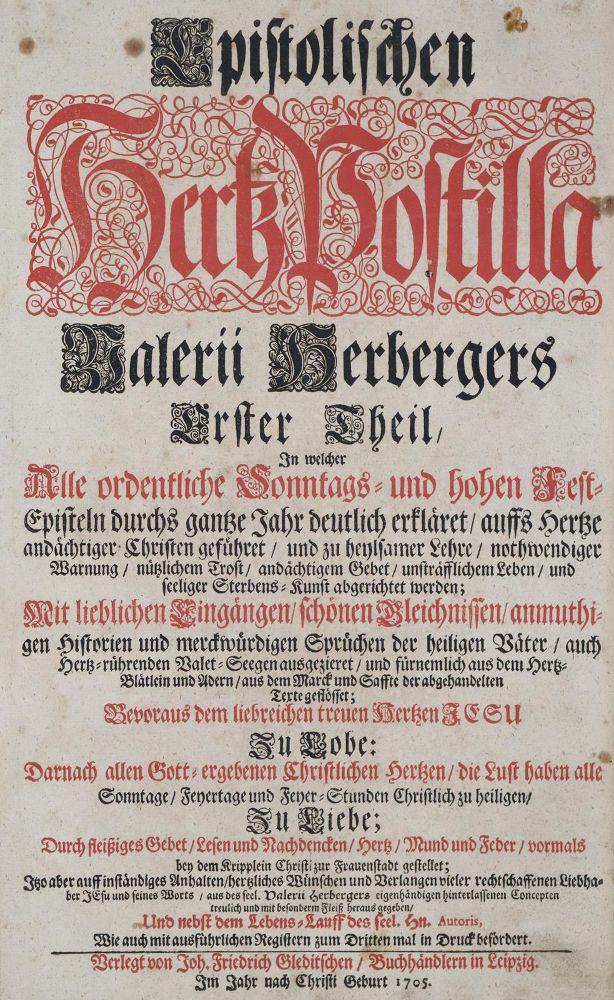 Epistolischen
Hertz Postilla
Valerii Herbergers
Erster Theil /
In welcher
Alle ordentliche Sonntags- und hohen Fest-
Episteln durchs gantze Jahr deutlich erkläret / auffs Hertze
andächtiger Christen geführet / und zu heylsamer Lehre / nothwendiger
Warnung / nützlichem Trost / andächtigem Gebet / unsträfflichem Leben / und
seeliger Sterbens-Kunst abgerichtet werden;
Mit lieblichen Eingängen / schönen Gleichnissen / anmuthi-
gen Historien und merckwürdigen Sprüchen der heiligen Väter / auch
Hertz-rührenden Valet-Seegen ausgezieret / und fürnemlich aus dem Hertz-
Blätlein und Adern / aus dem Marck und Saffte der abgehandelten
Texte geflösset;
Bevoraus dem liebreichen treuen Hertzen JESU
Zu Lobe:
Darnach allen Gott-ergebenen Christlichen Hertzen / die Lust haben alle
Sonntage / Feyertage und Feyer-Stunden Christlich zu heiligen /
Zu Liebe;
Durch fleißiges Gebet / Lesen und Nachdencken / Hertz / Mund und Feder / vormals
bey dem Kripplein Christi zur Frauenstadt gestellet;
Itzo aber auff inständiges Anhalten / hertzliches Wünschen und Verlangen vieler rechtschaffenen Liebha-
ber JEsu und seines Worts / aus des seel. Valerii Herbergers eigenhändigen hinterlassenen Concepten
treulich und mit besonderm Fleiß heraus gegeben /
Und nebst dem Lebens-Lauff des seel. Hn. Autoris,
Wie auch mit ausführlichen Registern zum Dritten mal in Druck befördert.
Verlegt von Joh. Friedrich Gleditschen / Buchhändlern in Leipzig.
Im Jahr nach Christi Geburt 1705.